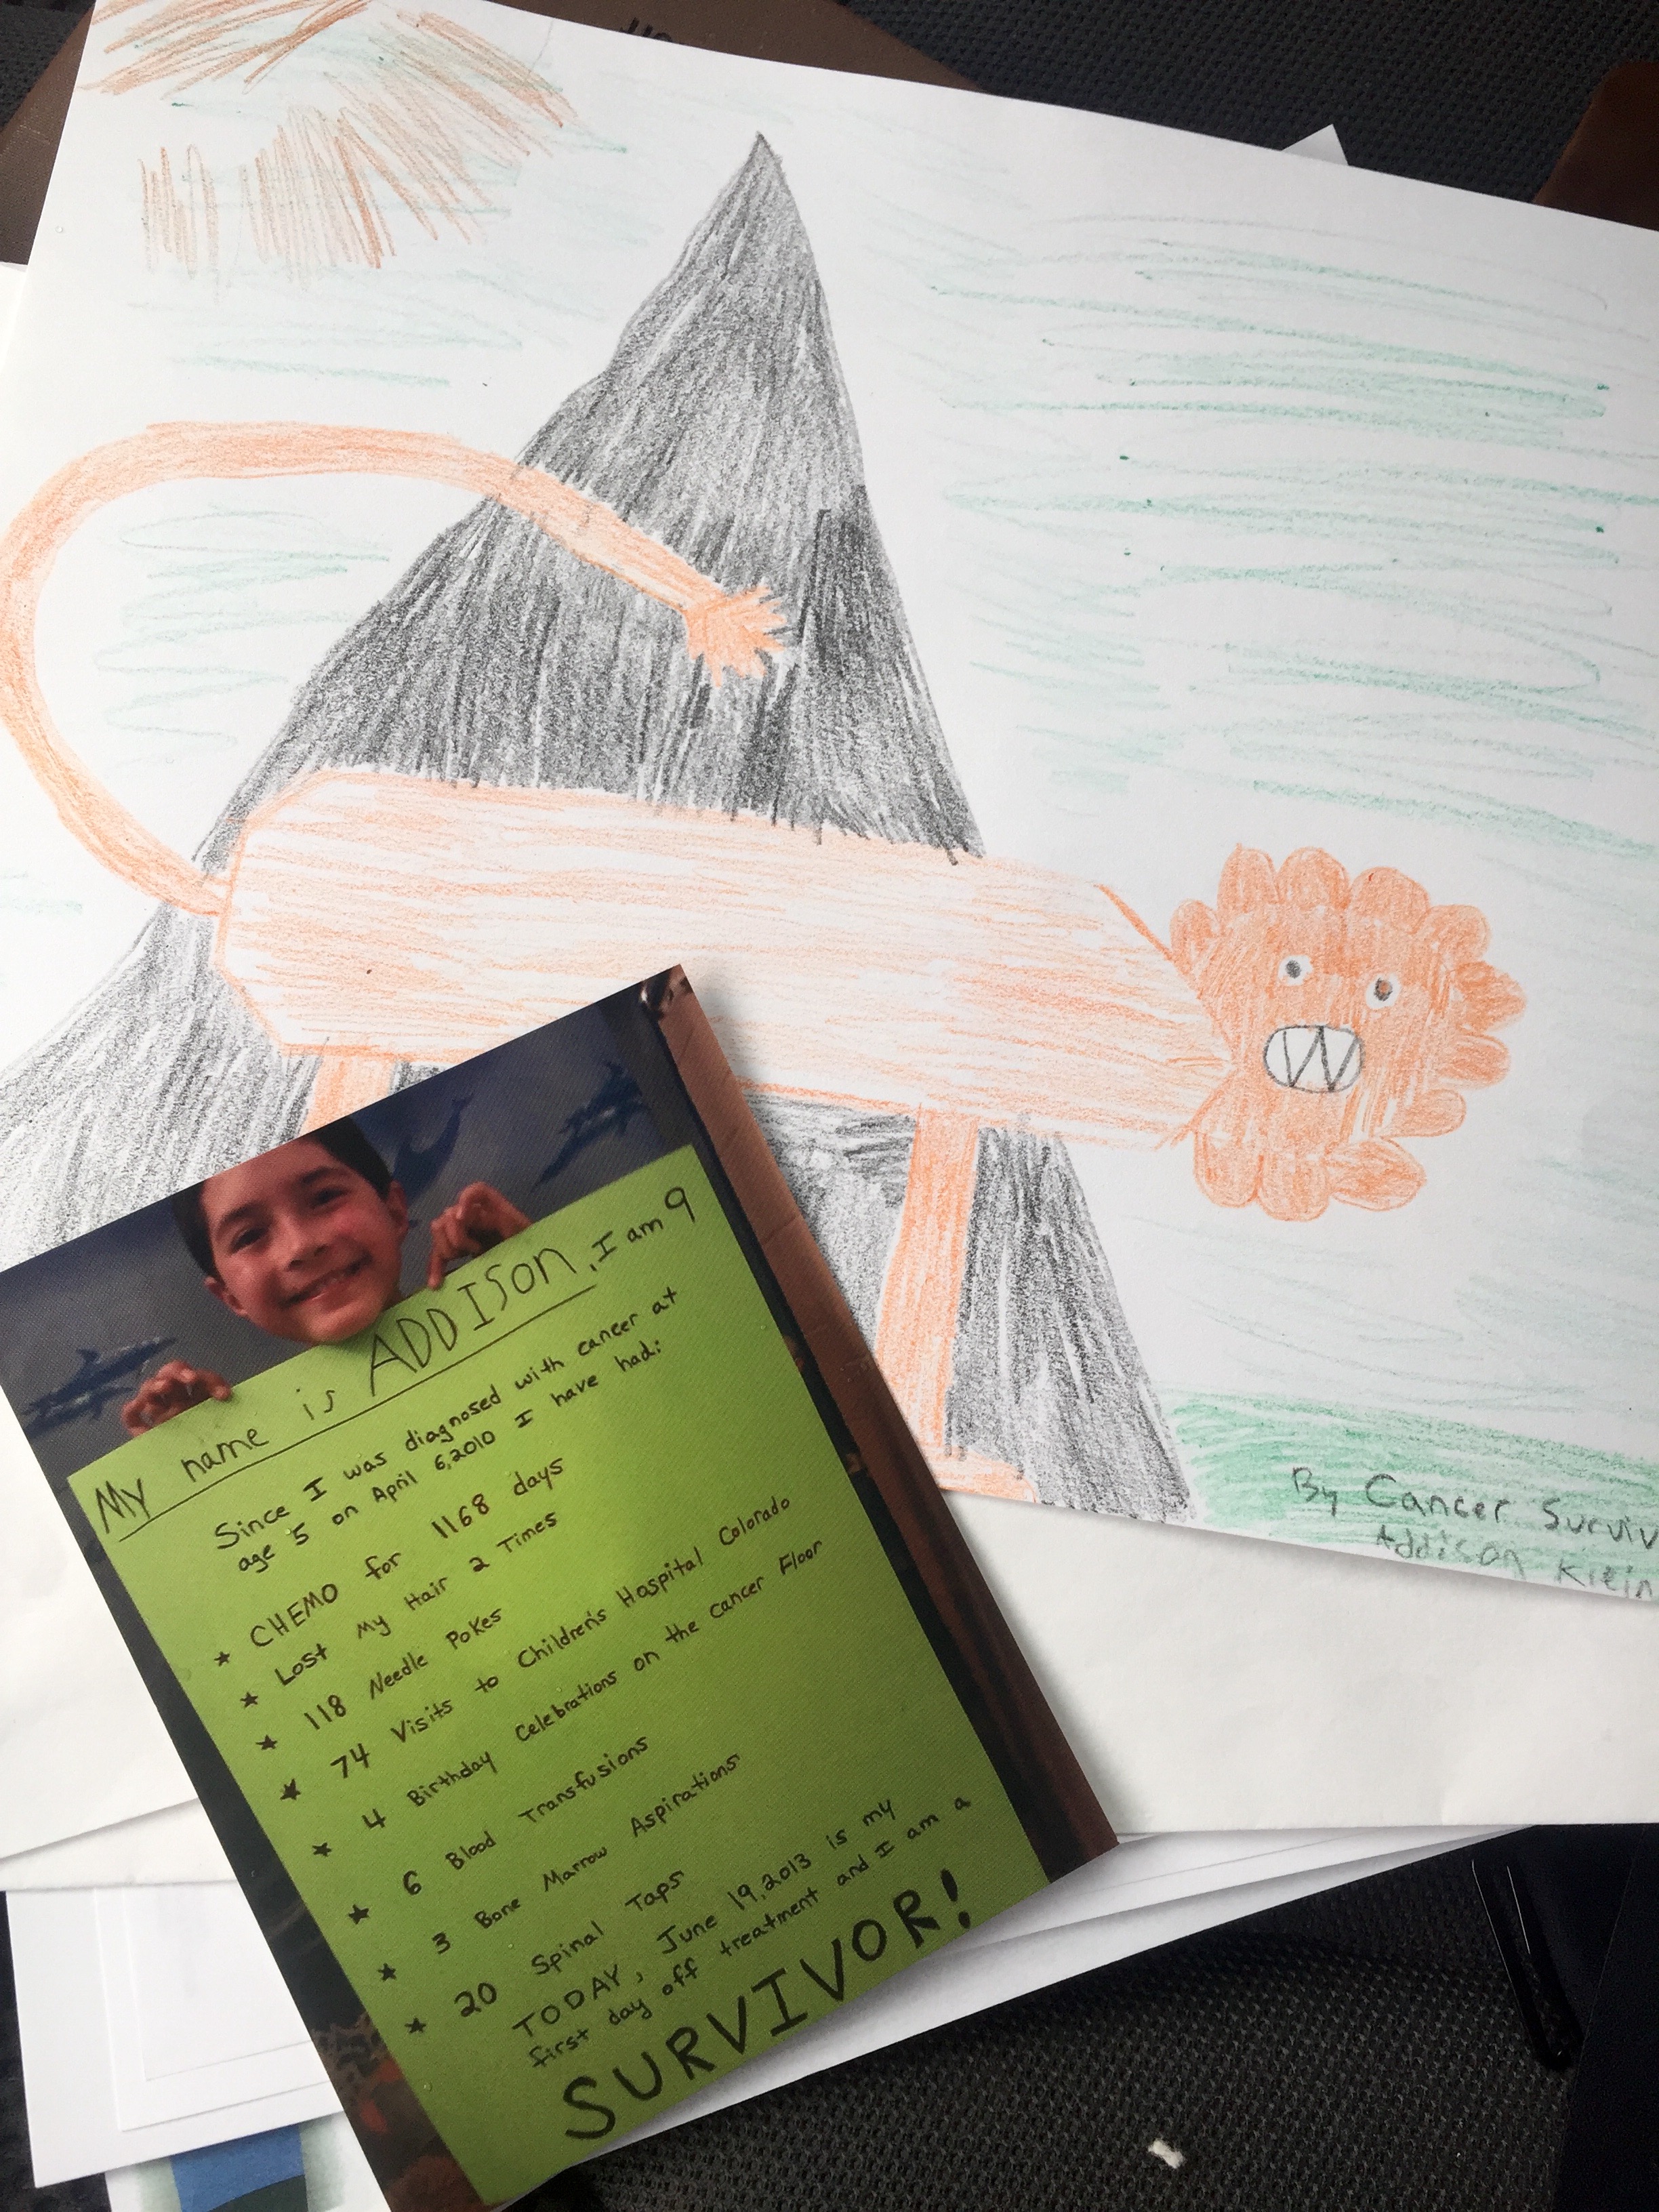 By Cancer Surviv
Addison Klein
My name is ADDISON, I am 9
Since I was diagnosed with cancer at
age 5 on April 6, 2010 I have had:
★ CHEMO for 1168 days
★ Lost My Hair 2 Times
★ 118 Needle Pokes
★ 74 Visits to Children's Hospital Colorado
★ 4 Birthday Celebrations on the Cancer Floor
★ 6 Blood Transfusions
★ 3 Bone Marrow Aspirations
★ 20 Spinal Taps
TODAY, June 19, 2013 is my
first day off treatment and I am a
SURVIVOR!